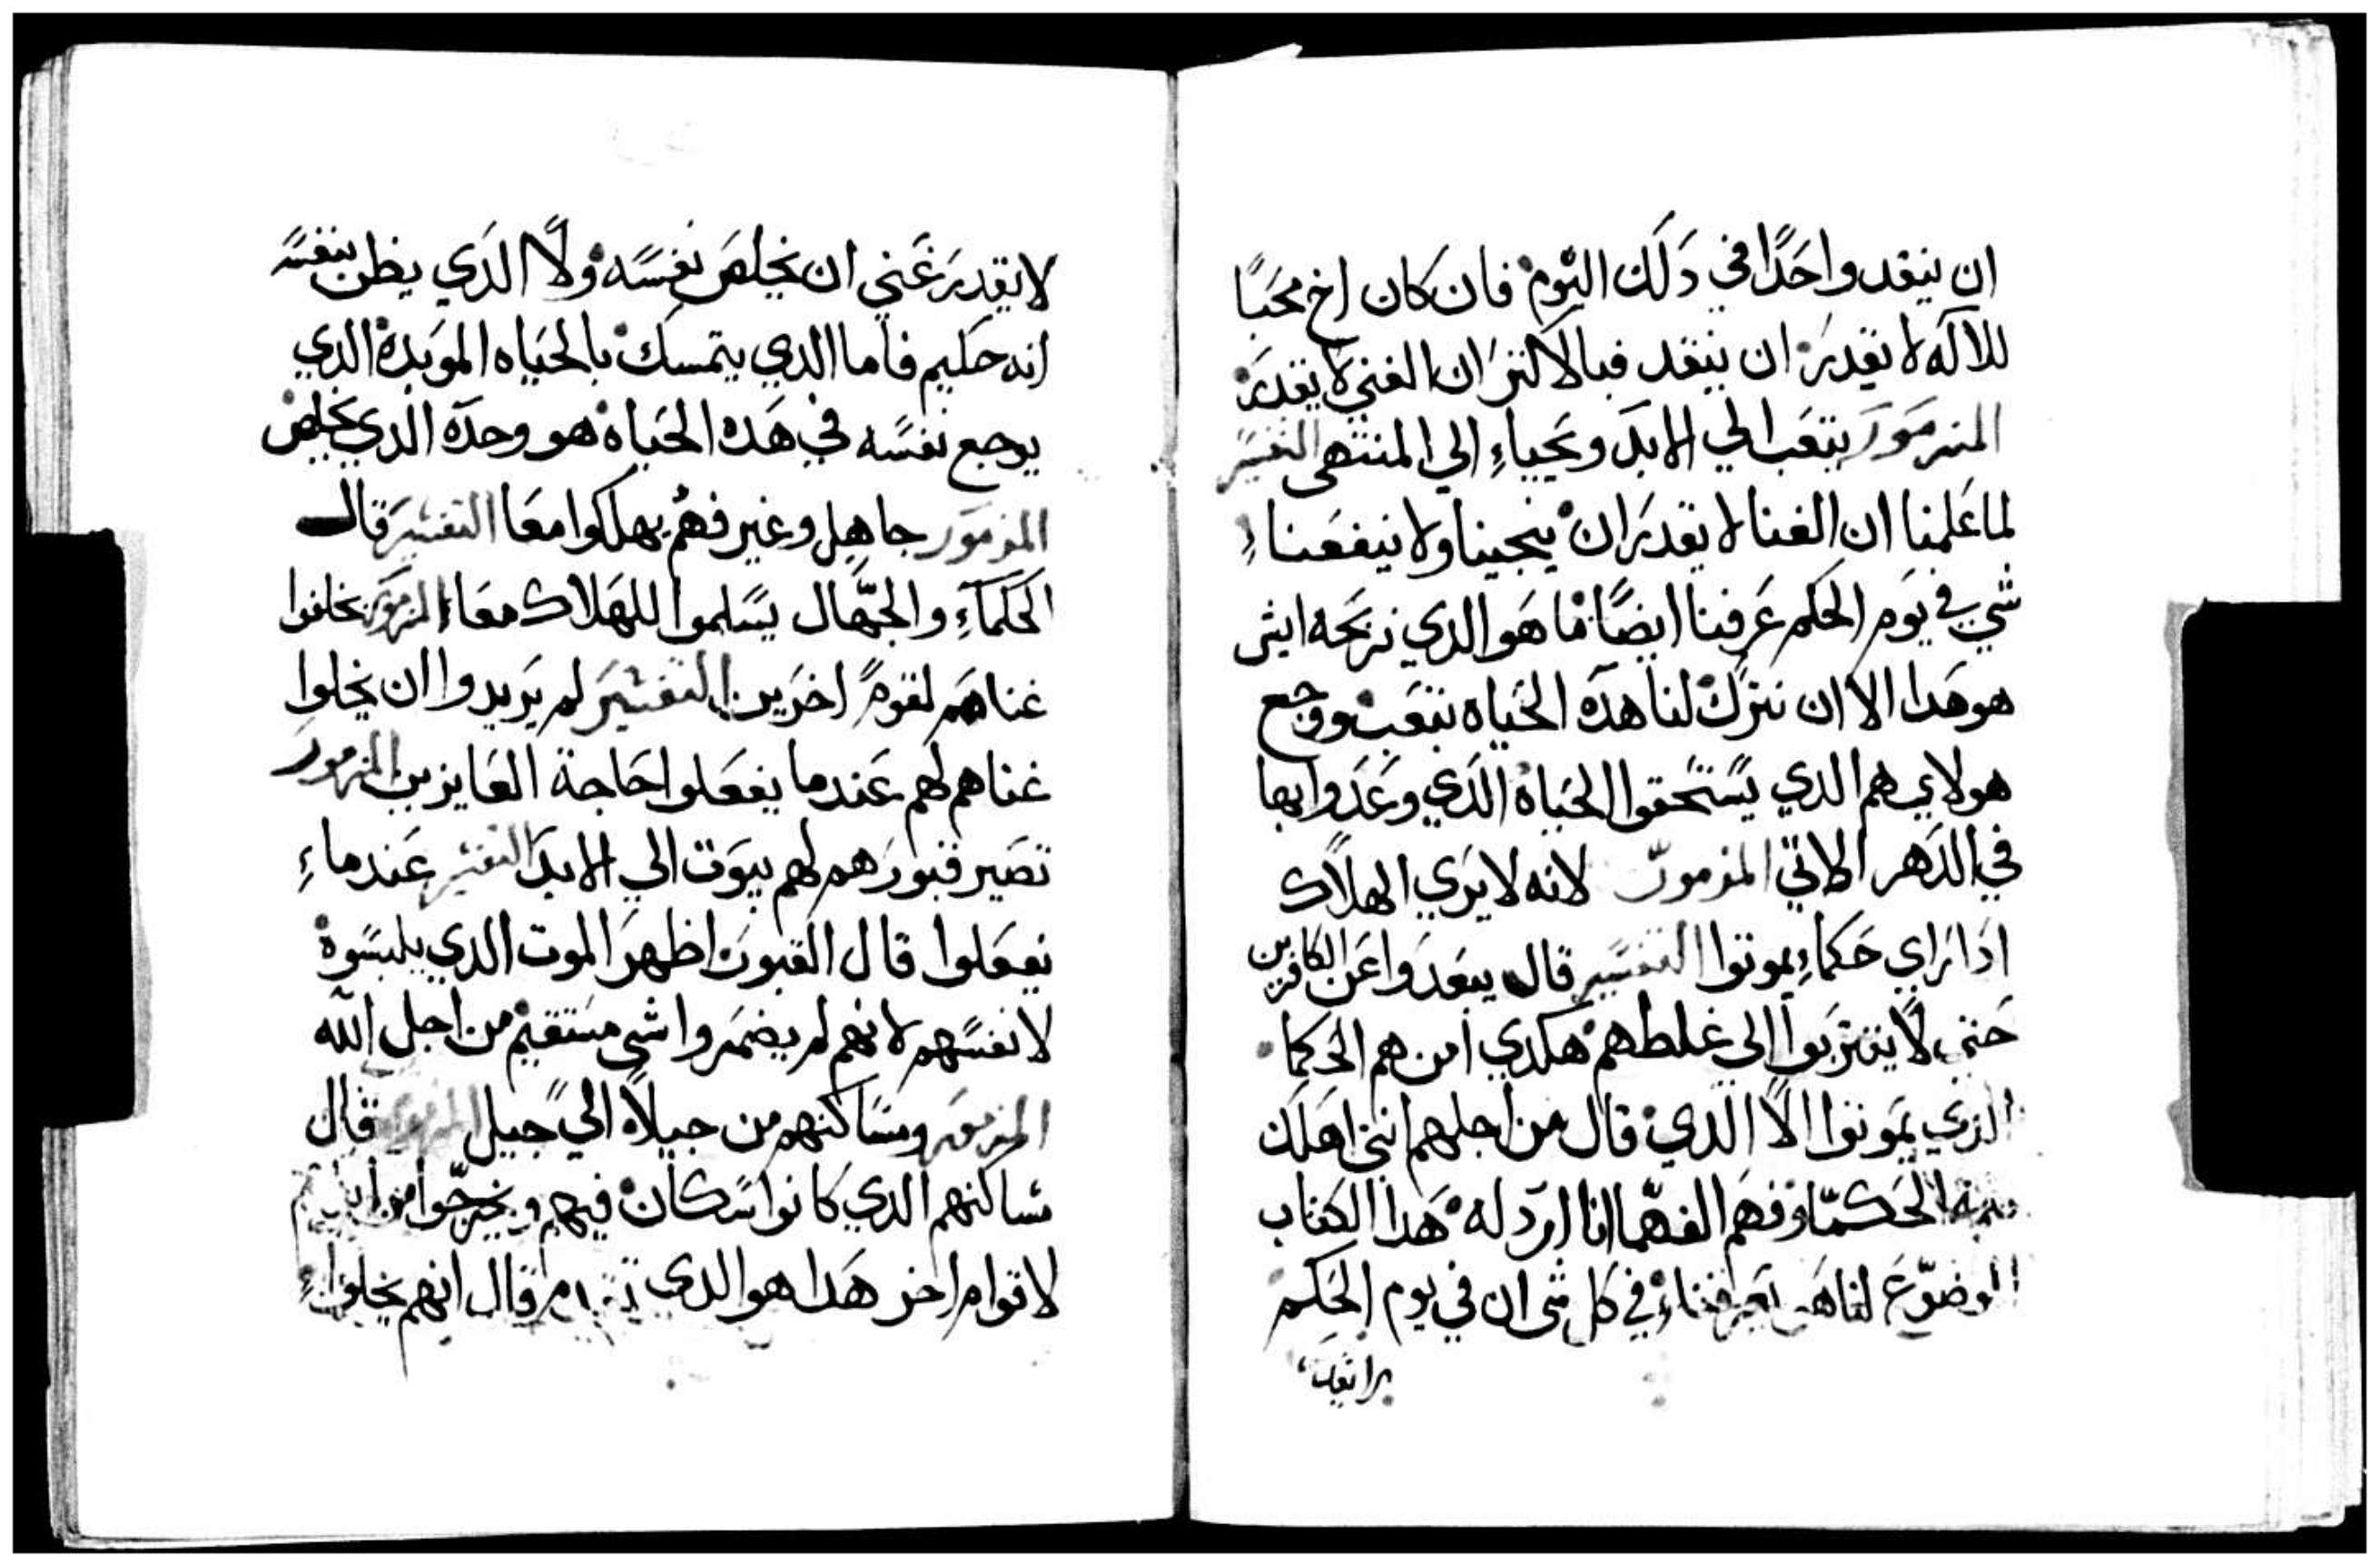 ان ينقد واحدًا في دلك اليوم فان كان اخ محبًا
للاله لا يقدر ان ينقد فبالاكتر ان الغني لا يقدر
المزمور يتعب الي الابد ويحياء الي المنتهي التفسير
لما علمنا ان الغنا لا يقدر ان ينجينا ولا ينفعنا
شي في يوم الحكم عرفنا ايضًا ما هو الدي نربحه ايش
هو هدا الا ان نترك لنا هده الحياه بتعب ووجع
هولاي هم الدي يستحقوا الحياة الدي وعدوا بها
في الدهر الاتي المزمور لانه لا يري الهلاك
ادا راي حكماء يموتوا التفسير قال يبعدوا عن الكافرين
حتي لا يقتربوا الي غلطهم هكدي امن هم الحكما
الدي يموتوا الا الدي قال من اجلهم انني اهلك
الحكما وفهم الفهما انا ارد له هدا الكتاب
الموضوع لنا هو يعرفناء في كل شي ان في يوم الحكم
لا يقدر غني ان يخلص نفسه ولا الدي يظن بنفسه
انه حكيم فاما الدي يتمسك بالحياه الموبدة الدي
يوجع نفسه في هده الحياة هو وحده الدي يخلص
المزمور جاهل وغير فهم يهلكوا معا التفسير قال
الحكماء والجهال يسلموا للهلاك معا المزمور يخلفوا
غناهم لقوم اخرين التفسير لم يريدوا ان يخلوا
غناهم لهم عندما يفعلوا حاجة العايزين المزمور
تصير قبورهم لهم بيوت الي الابد التفسير عندماء
يفعلوا قال القبور اظهر الموت الدي يلبسوة
لانفسهم لانهم لم يضمروا شي مستقيم من اجل الله
المزمور ومساكنهم من جيلا الي جيل قال
مساكنهم الدي كانوا سكان فيهم ويخرجوا
لاقوام اخر هدا هو الدي قال انهم يخلوا